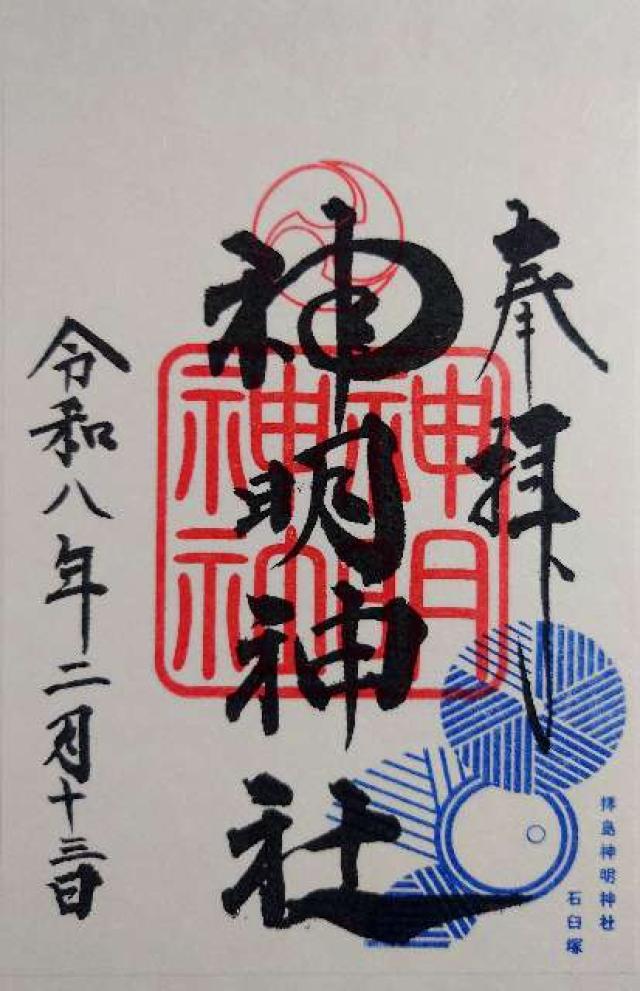 奉拝
神明神社
神明
神社
令和八年二月十三日
拝島神明神社
石臼塚